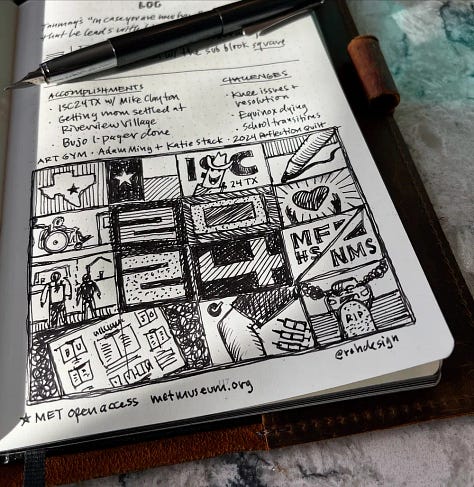 LOG
"in case you are
that he leads with
the sub block square
ACCOMPLISHMENTS
• ISC24TX w/ Mike Clayton
• Getting mom settled at
Riverview Village
• Bujo 1-pager done
CHALLENGES
• Knee issues +
resolution
• Equinox dying
• School transitions
ART GYM • Adam Ming + Katie Stack • 2024 Reflection Quilt
ISC
24 TX
20
24
MF
HS
NMS
RIP
@rohdesign
★ MET open access metmuseum.org